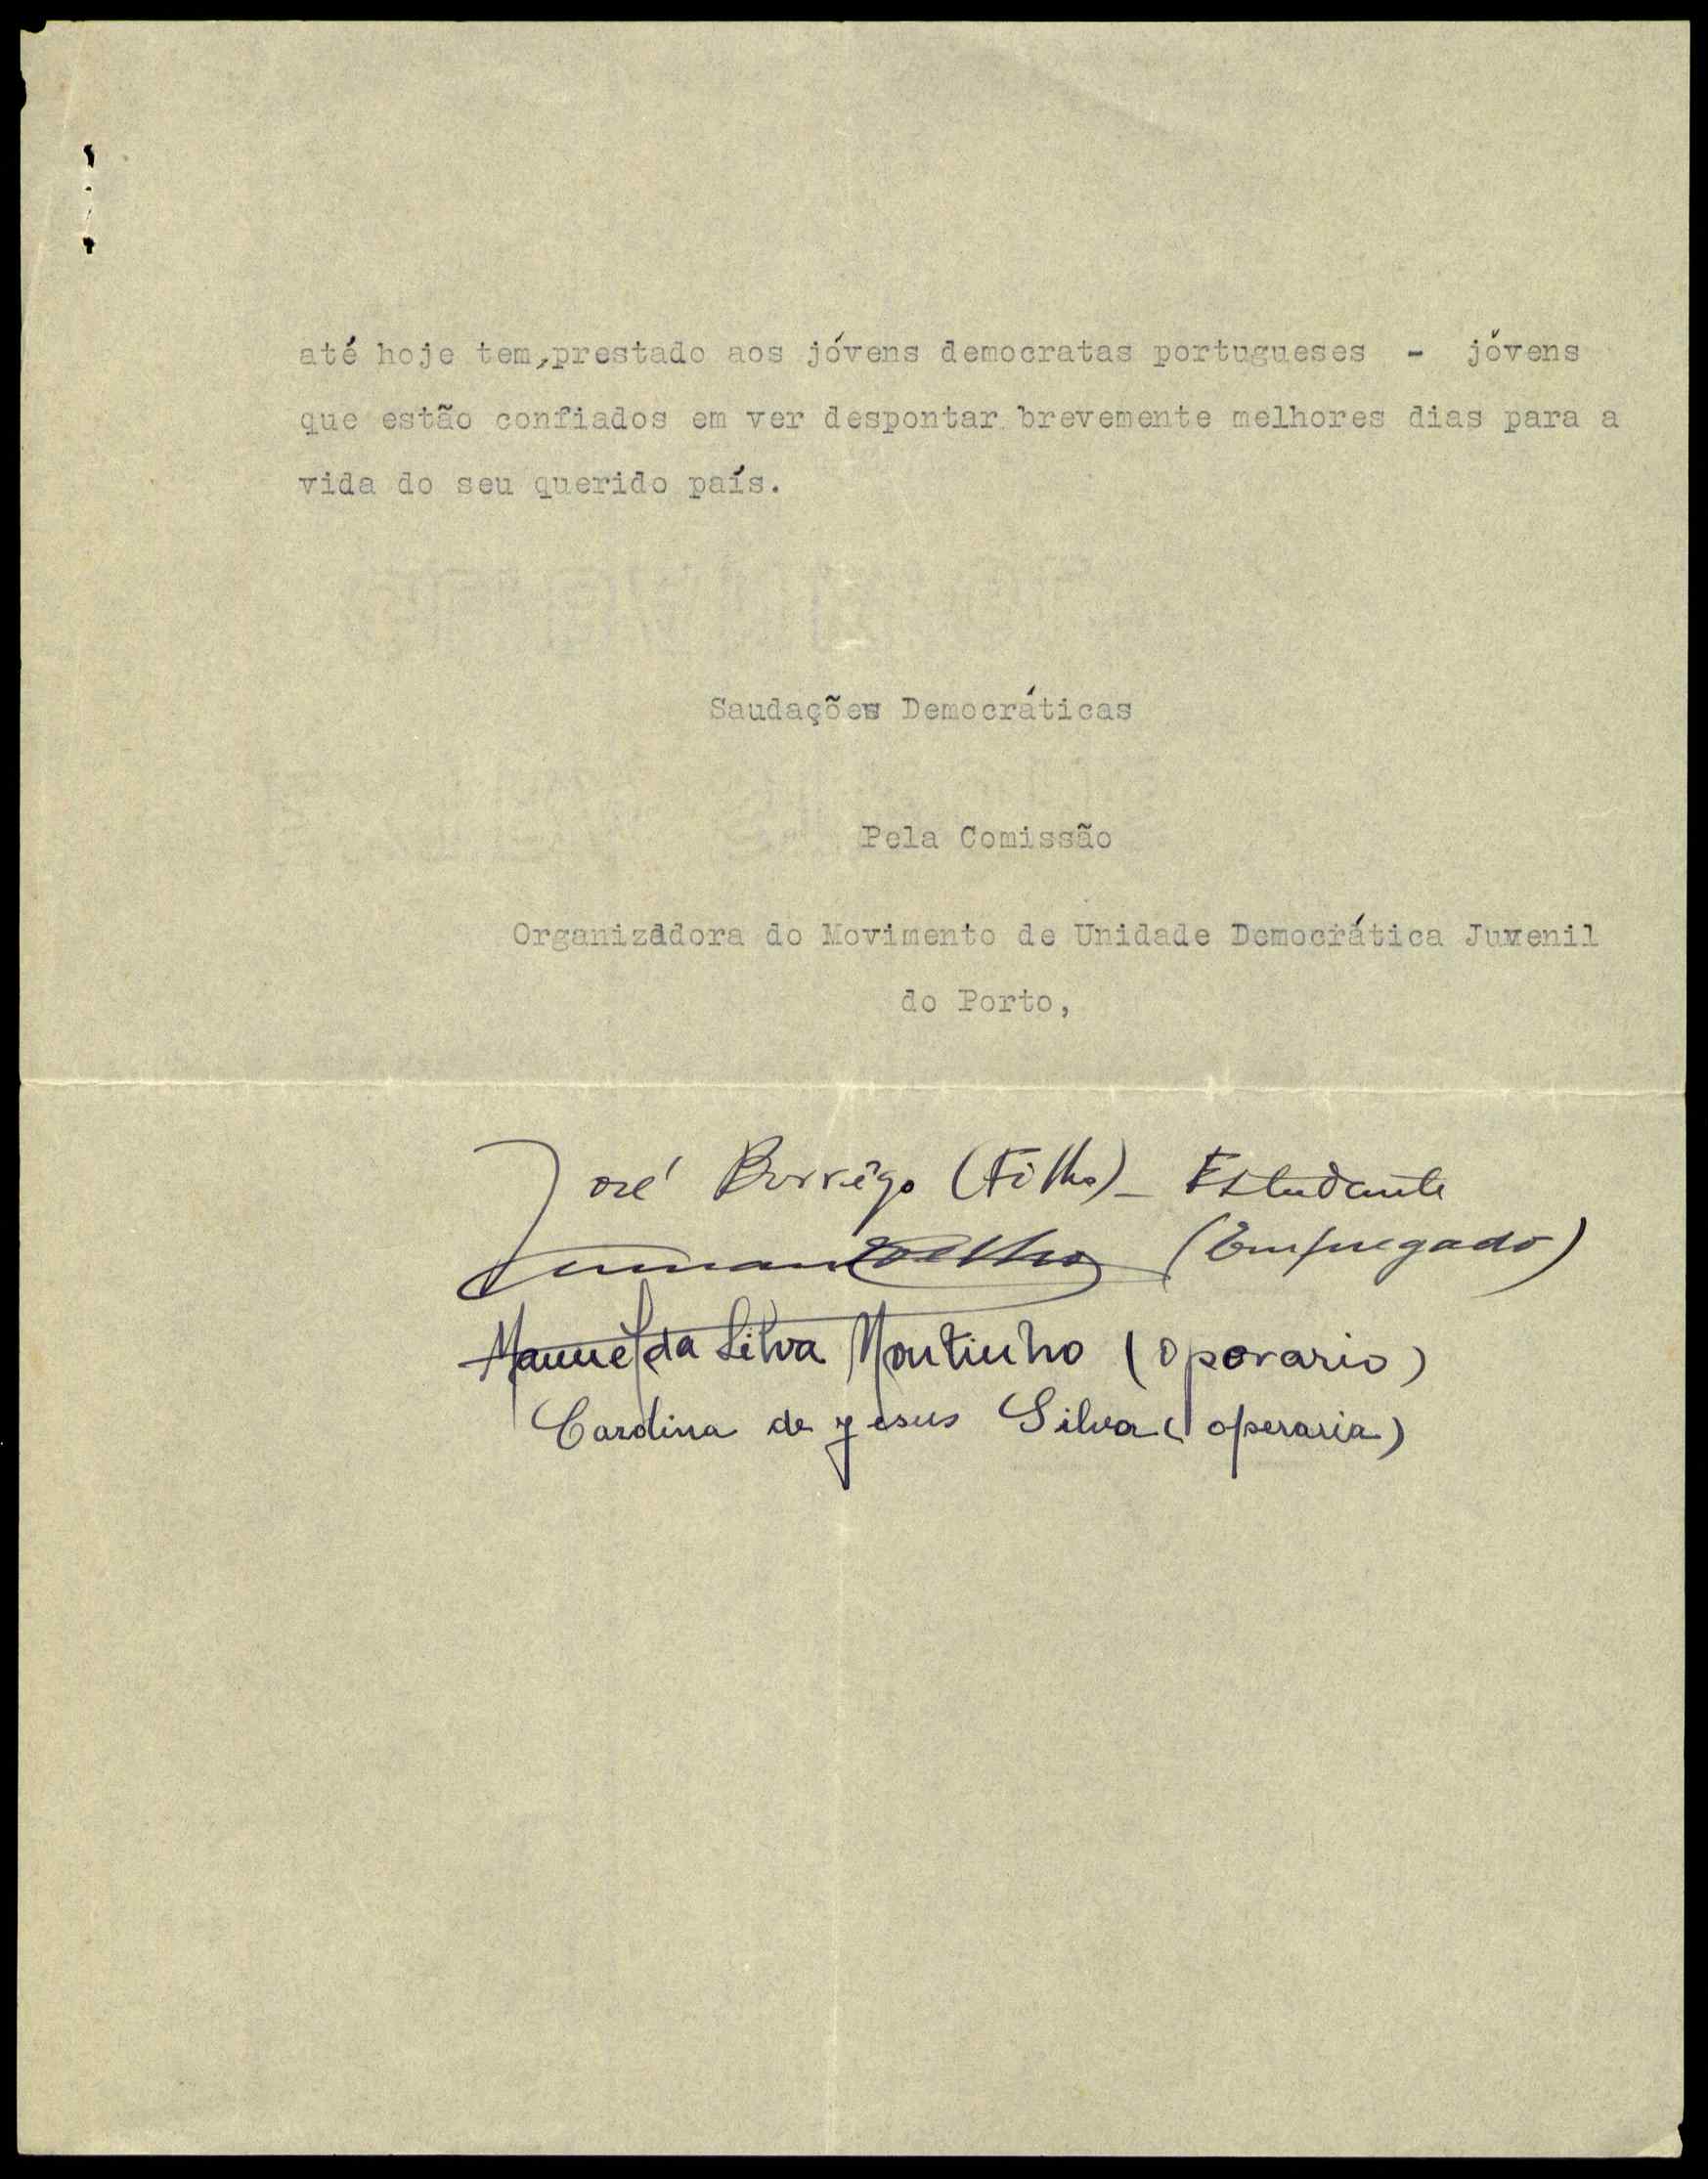 até hoje tem, prestado aos jóvens democratas portugueses - jóvens
que estão confiados em ver despontar brevemente melhores dias para a
vida do seu querido país.
Saudações Democráticas
Pela Comissão
Organizadora do Movimento de Unidade Democrática Juvenil
do Porto,
José Borrêgo (Filho) - Estudante
(Empregado)
Manuel da Silva Moutinho (Operario)
Carolina de jesus Silva (operaria)